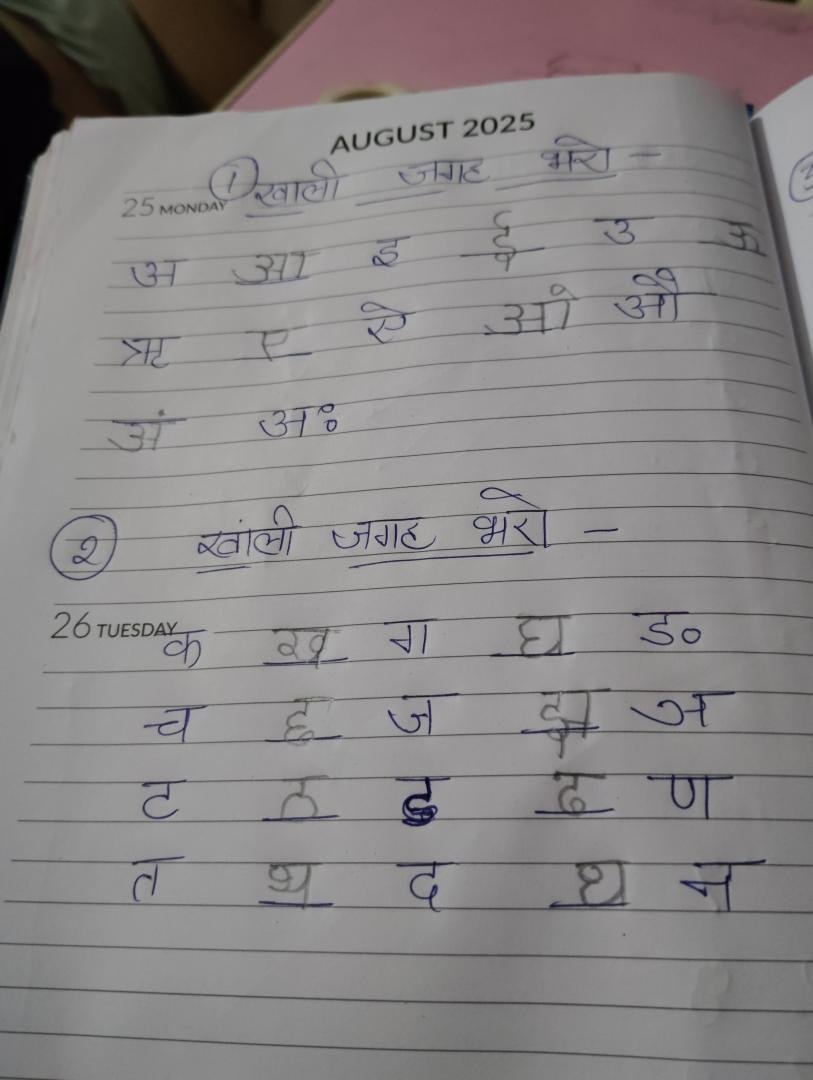 AUGUST 2025
25 MONDAY ① खाली जगह भरो –
अ आ इ ई उ ऊ
ऋ ए ऐ ओ औ
अं अः
② खाली जगह भरो –
26 TUESDAY
क ख ग घ ङ
च छ ज झ ञ
ट ठ ड ढ ण
त थ द ध न